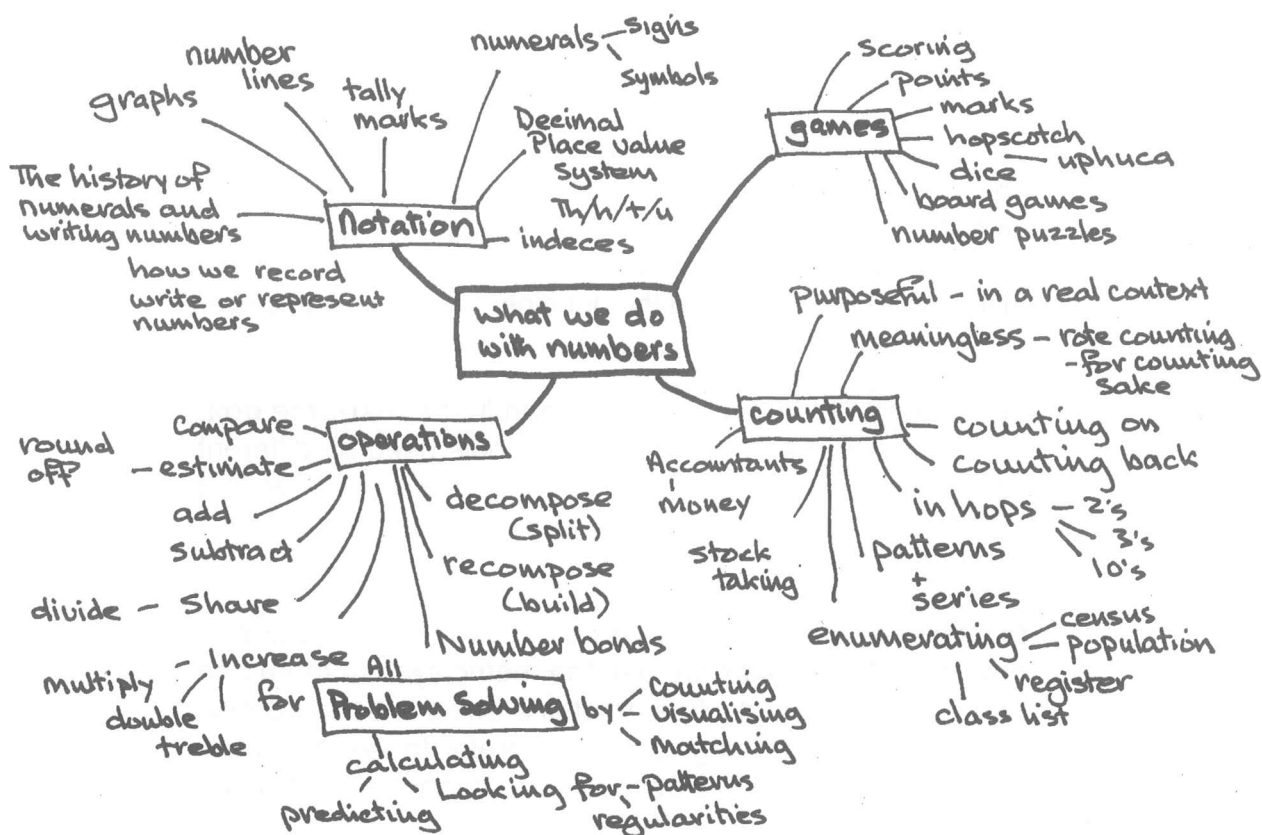 number
lines
graphs
tally
marks
numerals
signs
symbols
Decimal
Place value
System
Th/h/t/u
indeces
The history of
numerals and
writing numbers
Notation
how we record
write or represent
numbers
games
scoring
points
marks
hopscotch
uphuca
dice
board games
number puzzles
what we do
with numbers
purposeful - in a real context
meaningless - rote counting
- for counting
sake
counting
counting on
counting back
Accountants
money
stock
taking
in hops - 2's
3's
10's
patterns
+
series
enumerating
census
population
register
class list
operations
compare
round
off
estimate
add
subtract
divide - Share
multiply
- Increase
double
treble
decompose
(split)
recompose
(build)
Number bonds
All
for
Problem Solving
by
counting
visualising
matching
calculating
predicting
Looking for - patterns
regularities